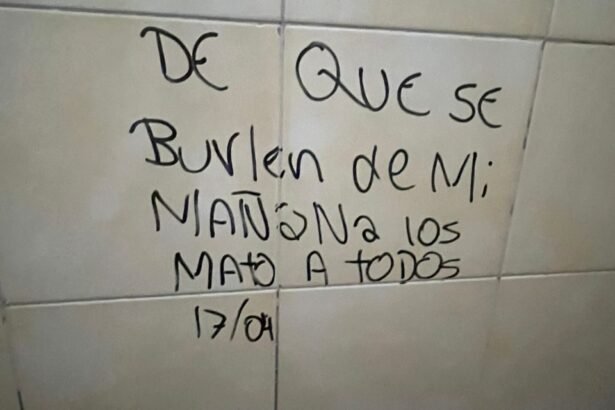 DE QUE SE
Burlen de Mi
MAÑaNa los
MAto A toDOs
17/04